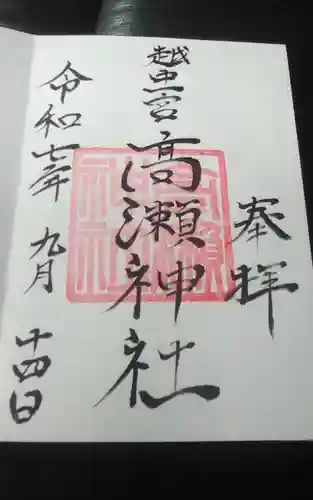 奉拝
越中一宮
高瀬神社
令和七年
九月
十四日